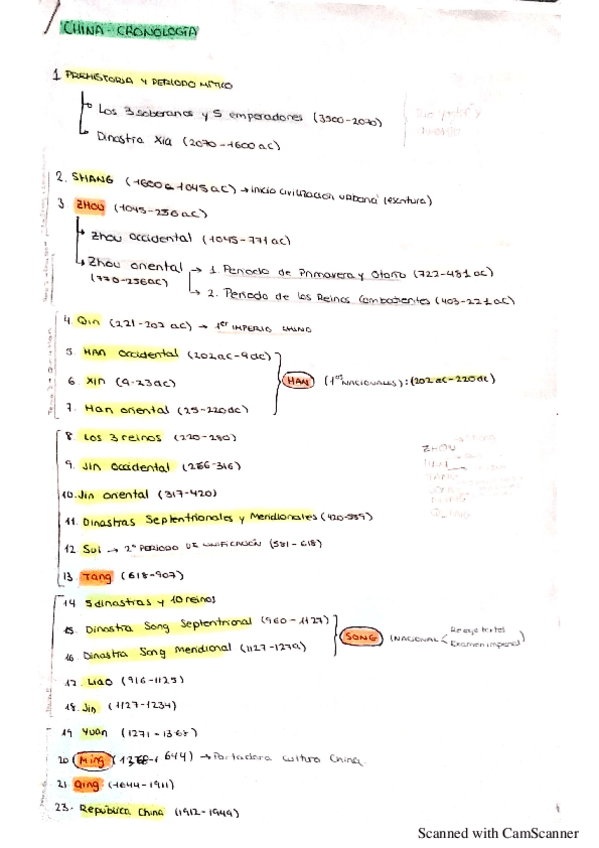 CHINA - CRONOLOGÍA
1 PREHISTORIA Y PERIODO MÍTICO
Los 3 soberanos y 5 emperadores (3500-2070)
Dinastía Xia (2070-1600 ac)
2. SHANG (-1600 a 1045 ac) → inicio civilización urbana (escritura)
3 ZHOU (1045-256 ac)
Zhou Occidental (1045-771 ac)
Zhou oriental → 1. Periodo de Primavera y Otoño (722-481 ac)
(770-256ac)
2. Periodo de los Reinos Combatientes (403-221 ac)
4. Qin (221-202 ac) → 1er IMPERIO CHINO
5. HAN Occidental (202ac-9dc)
6. Xin (9-23ac) HAN (1os NACIONALES): (202 ac-220dc)
7. Han oriental (25-220dc)
8. Los 3 reinos (220-280)
ZHOU
9. Jin Occidental (266-316)
10. Jin oriental (317-420)
11. Dinastías Septentrionales y Meridionales (420-589)
12 Sui → 2º PERIODO DE UNIFICACIÓN (581-618)
13. Tang (618-907)
14 5 dinastías y 10 reinos
15. Dinastía Song Septentrional (960-1127)
SONG (NACIONAL Examen imperial)
16 Dinastía Song Meridional (1127-1279)
17. Liao (916-1125)
18. Jin (1127-1234)
19 Yuan (1271-1368)
20 Ming (1368-1644) → Portadora cultura China
21 Qing (1644-1911)
23. República China (1912-1949)
Scanned with CamScanner